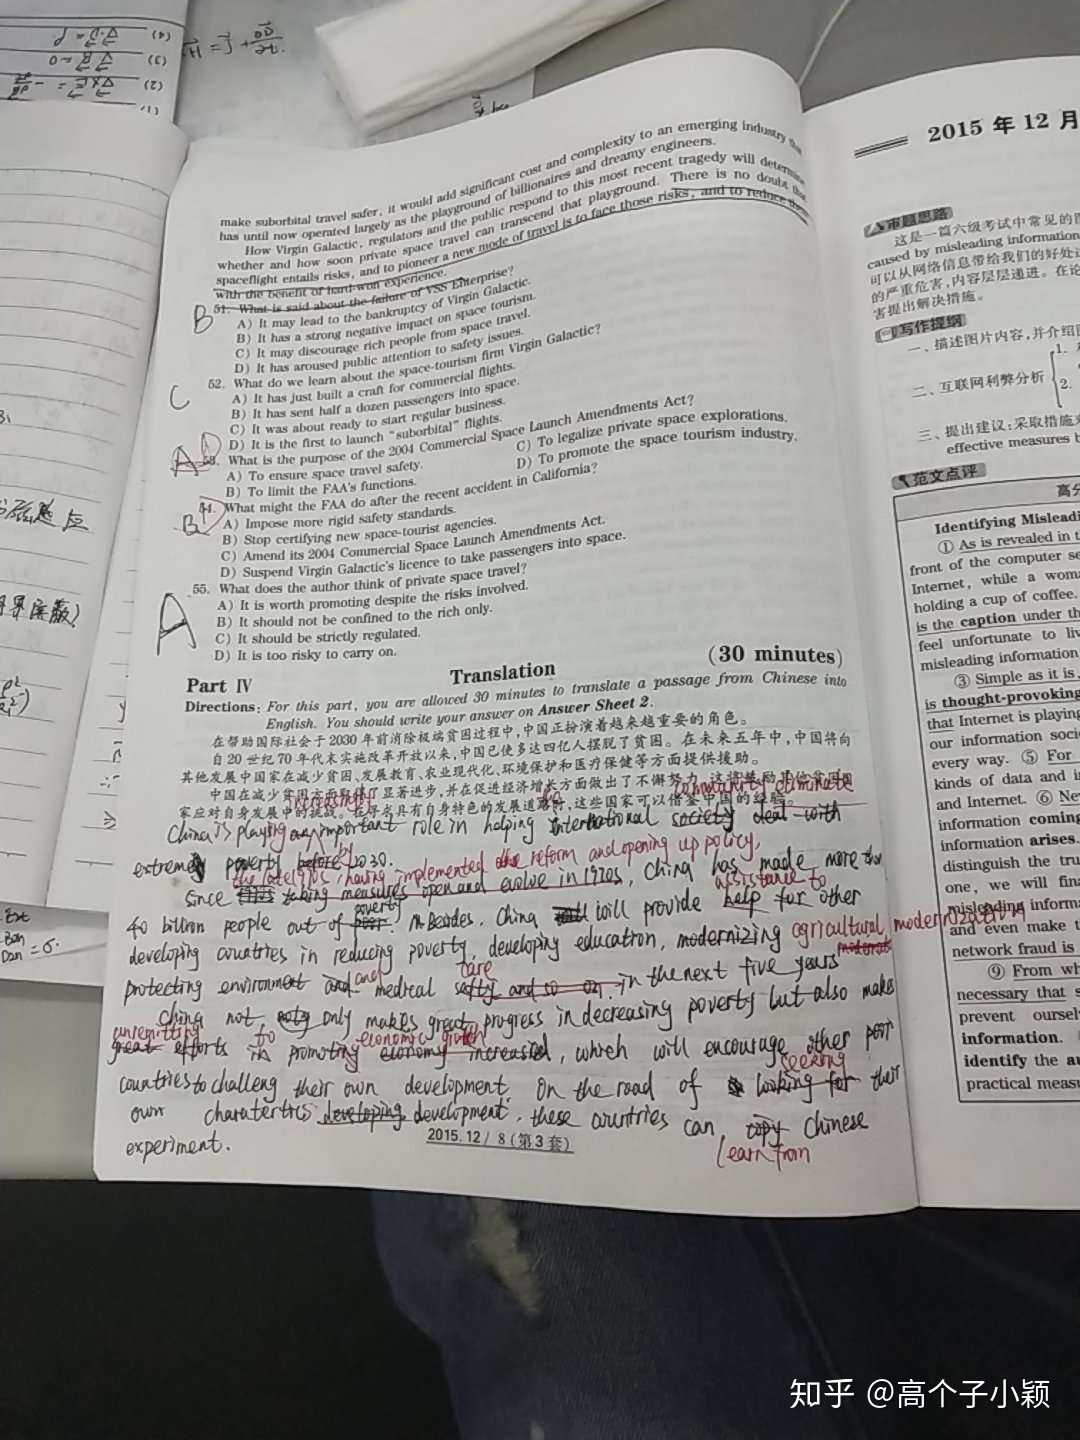 make suborbital travel safer, it would add significant cost and complexity to an emerging industry
has until now operated largely as the playground of billionaires and dreamy engineers.
How Virgin Galactic, regulators and the public respond to this most recent tragedy will determine
whether and how soon private space travel can transcend that playground. There is no doubt that
spaceflight entails risks, and to pioneer a new mode of travel is to face those risks, and to reduce them
with the benefit of hard-won experience.
B
51. What is said about the failure of VSS Enterprise?
A) It may lead to the bankruptcy of Virgin Galactic.
B) It has a strong negative impact on space tourism.
C) It may discourage rich people from space travel.
D) It has aroused public attention to safety issues.
C
52. What do we learn about the space-tourism firm Virgin Galactic?
A) It has just built a craft for commercial flights.
B) It has sent half a dozen passengers into space.
C) It was about ready to start regular business.
D) It is the first to launch “suborbital” flights.
A D
53. What is the purpose of the 2004 Commercial Space Launch Amendments Act?
A) To ensure space travel safety.
C) To legalize private space explorations.
B) To limit the FAA's functions.
D) To promote the space tourism industry.
B
54. What might the FAA do after the recent accident in California?
A) Impose more rigid safety standards.
B) Stop certifying new space-tourist agencies.
C) Amend its 2004 Commercial Space Launch Amendments Act.
D) Suspend Virgin Galactic's licence to take passengers into space.
A
55. What does the author think of private space travel?
A) It is worth promoting despite the risks involved.
B) It should not be confined to the rich only.
C) It should be strictly regulated.
D) It is too risky to carry on.
Part Ⅳ Translation (30 minutes)
Directions: For this part, you are allowed 30 minutes to translate a passage from Chinese into
English. You should write your answer on Answer Sheet 2.
在帮助国际社会于 2030 年前消除极端贫困过程中,中国正扮演着越来越重要的角色。
自 20 世纪 70 年代末实施改革开放以来,中国已使多达四亿人摆脱了贫困。在未来五年中,中国将向
其他发展中国家在减少贫困、发展教育、农业现代化、环境保护和医疗保健等方面提供援助。
中国在减少贫困方面取得了显著进步,并在促进经济增长方面做出了不懈努力,这将鼓励其他贫困国
家应对自身发展中的挑战。在寻求具有自身特色的发展道路时,这些国家可以借鉴中国的经验。
increasingly community eliminate
China is playing an important role in helping international society deal with
extreme poverty before 2030.
by
the late 1970s, having implemented the reform and opening up policy,
since taking measures open and evolve in 1920s, China has made more than
poverty assistance to
40 billion people out of poor. Besides, China will provide help for other
developing countries in reducing poverty, developing education, modernizing agricultural modernization
and care
protecting environment and medical safty and so on. in the next five years
China not only makes great progress in decreasing poverty but also makes
unremitting to economic growth
great efforts in promoting economy increased, which will encourage other poor
seeking
countries to challeng their own development. On the road of looking for their
own charatertics developing development, these countries can copy Chinese
learn from
experiment.
2015.12/ 8(第3套)
2015 年 12 月
审题思路
这是一篇六级考试中常见的
caused by misleading information
可以从网络信息带给我们的好处
的严重危害,内容层层递进。在论
害提出解决措施。
写作提纲
一、描述图片内容,并介绍
二、互联网利弊分析
1.
2.
三、提出建议:采取措施
effective measures
范文点评
高分
Identifying
① As is revealed in
front of the computer
Internet, while a
holding a cup of coffee.
is the caption under
feel unfortunate to
misleading information
③ Simple as it is,
is thought-provoking
that Internet is playing
our information
every way. ⑤ For
kinds of data and
and Internet. ⑥
information coming
information arises.
distinguish the
one, we will
misleading
and even make
network fraud is
⑨ From
necessary that
prevent
information.
identify the
practical
知乎 @高个子小颖